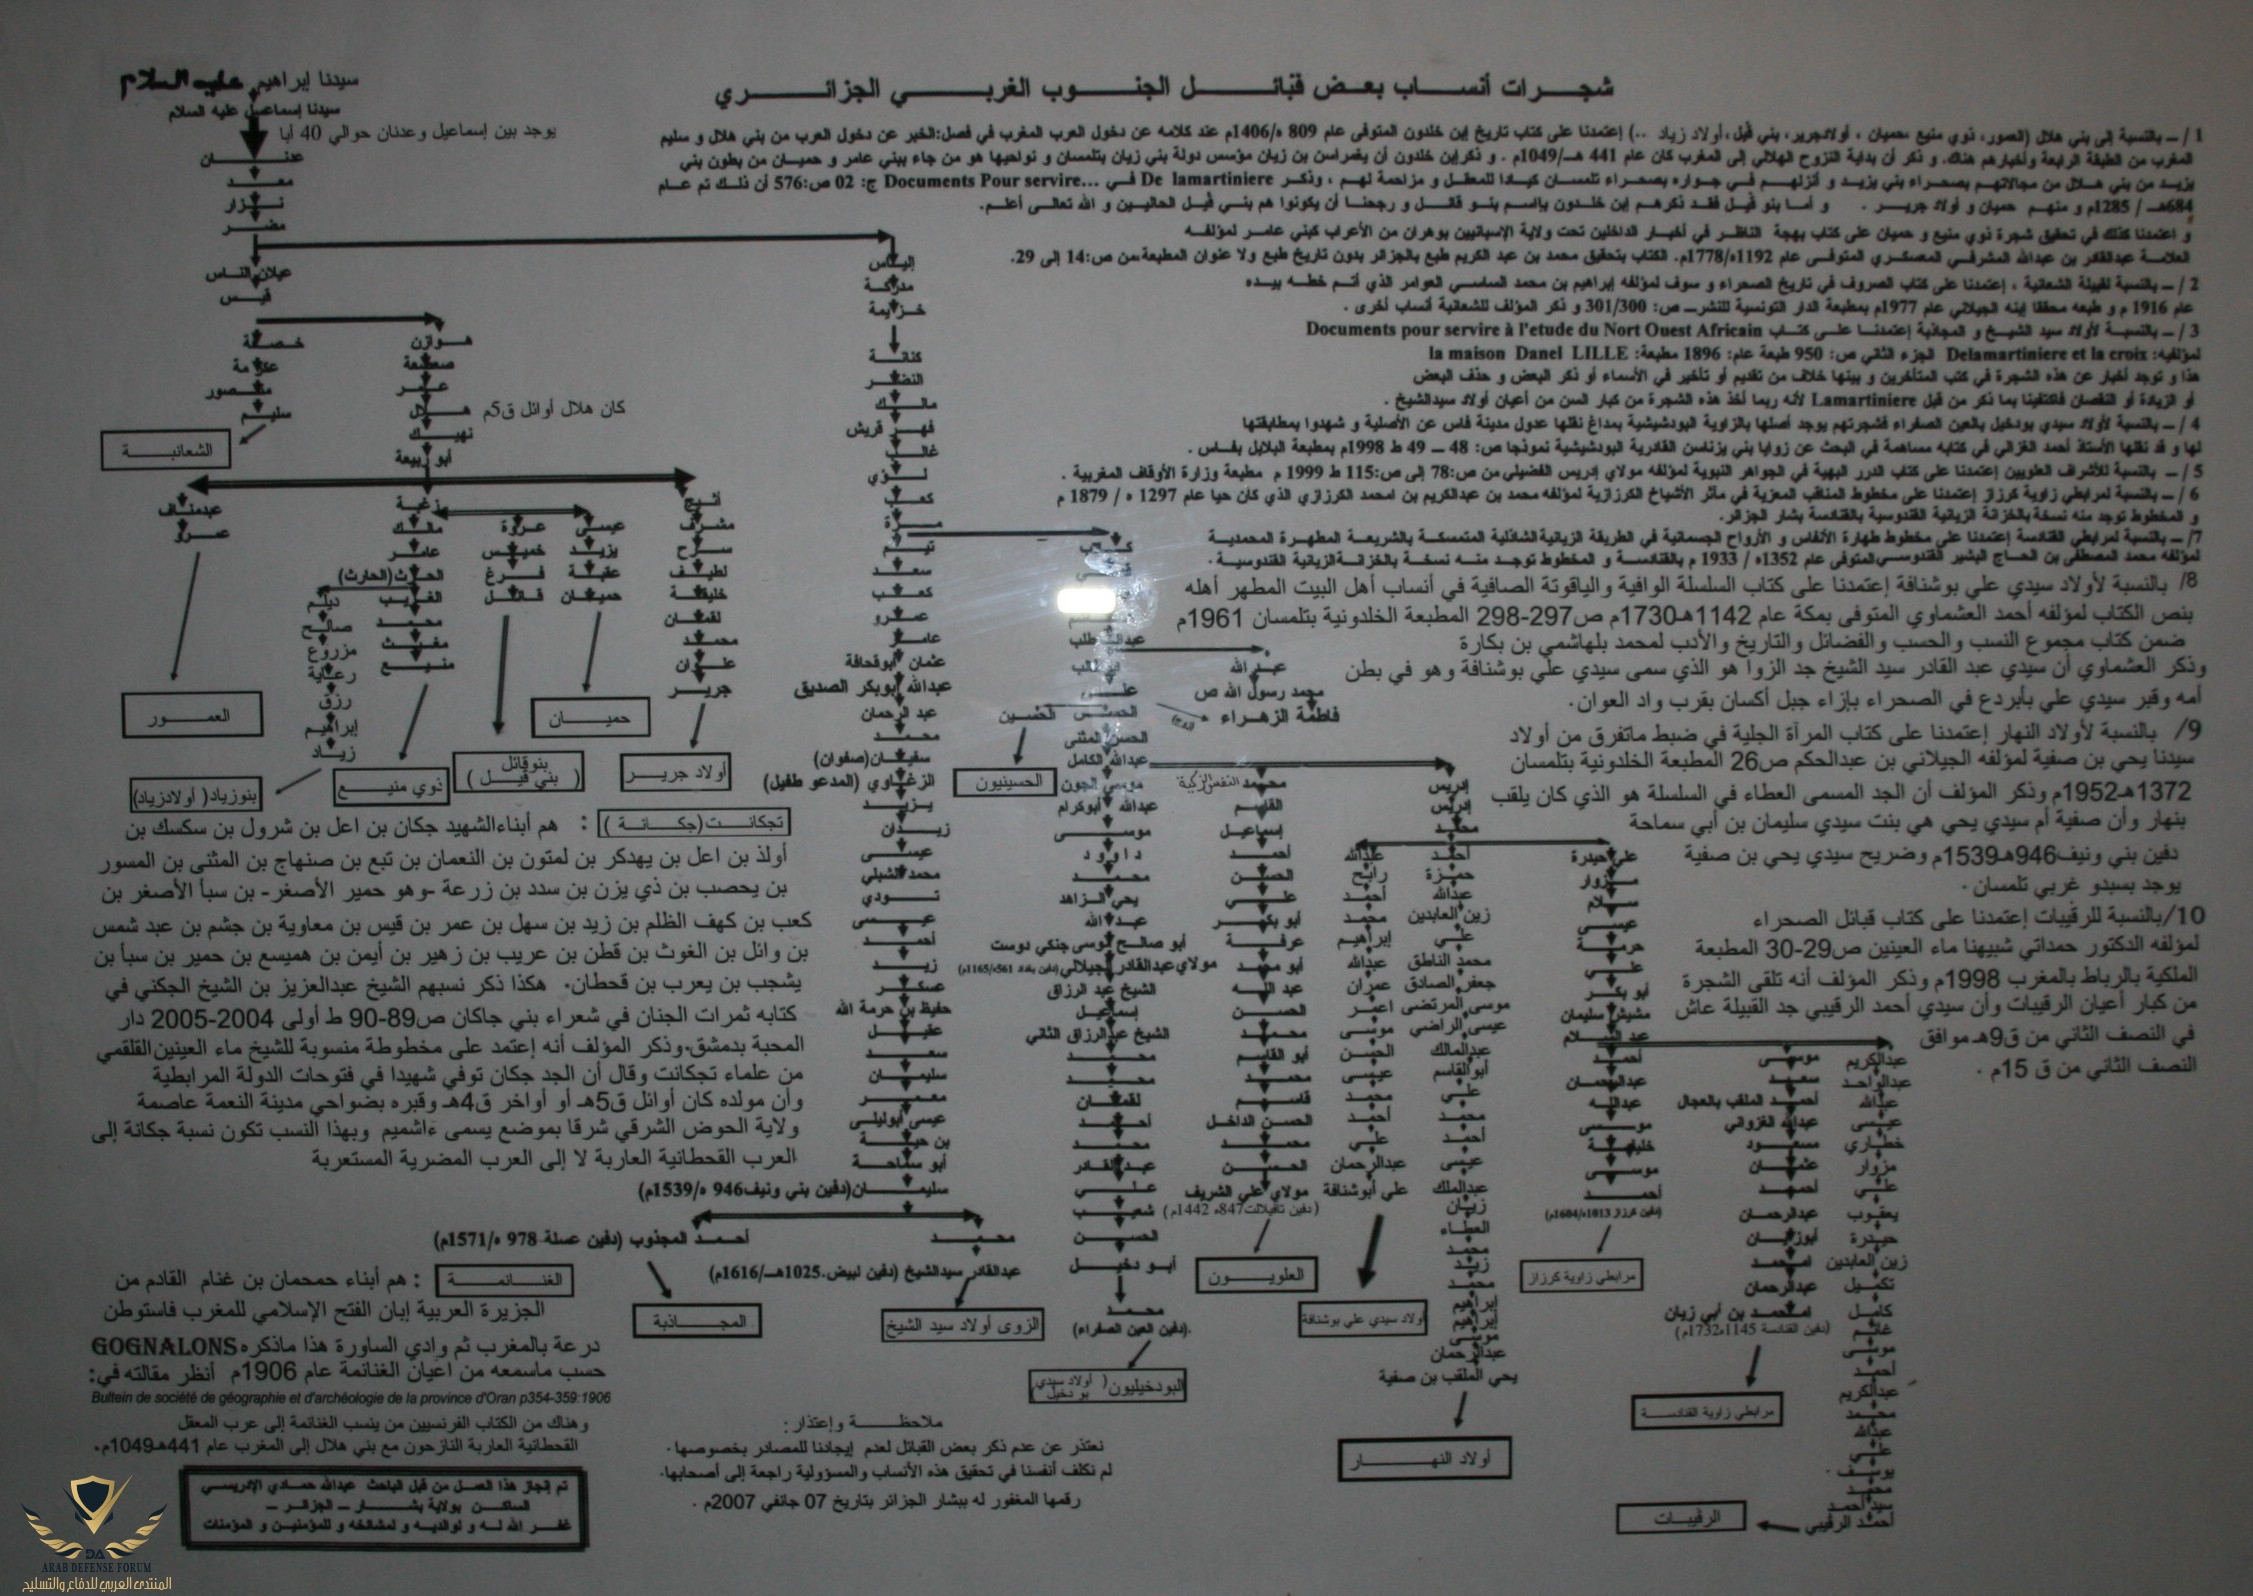 شجرات أنساب بعض قبائل الجنوب الغربي الجزائري
سيدنا إبراهيم عليه السلام
سيدنا إسماعيل عليه السلام
يوجد بين إسماعيل وعدنان حوالي 40 أبا
عدنان
معد
نزار
مضر
عيلان الناس
قيس
خصفة
عكرمة
منصور
سليم
الشعانبة
هوازن
صعصعة
عامر
هلال
كان هلال أوائل ق5م
نهيك
أبو ربيعة
عبدمناف
عمرو
العمور
زغبة
مالك
عامر
الحرث (الحارث)
ديلم
صالح
مزروع
رعاية
رزق
إبراهيم
زياد
بنوزياد (أولادزياد)
الغريب
محمد
مغيث
منيع
ذوي منيع
عروة
خميس
فرغ
قائل
بنوقائل
( بني قيل )
عيسى
يزيد
عقبة
حميان
حميان
أثبج
مشرف
سرح
لطيف
خليفة
لقمان
محمد
علوان
جرير
أولاد جرير
إلياس
مدركة
خزيمة
كنانة
النضر
مالك
فهر قريش
غالب
لؤي
كعب
مرة
تيم
سعد
كعب
عمرو
عامر
عثمان أبوقحافة
عبدالله أبوبكر الصديق
عبد الرحمان
محمد
سفيان (صفوان)
الزغاوي (المدعو طفيل)
يزيد
زيدان
عيسى
محمد الشبلي
تودي
عيسى
أحمد
زيد
عسكر
حفيظ بن حرمة الله
عقيل
سعد
سليمان
معمر
عيسى أبوليلى
بن حية
أبو سماحة
سليمان (دفين بني ونيف 946 ه/1539م)
أحمد المجذوب (دفين عسلة 978 ه/1571م)
المجاذبة
محمد
عبدالقادر سيدالشيخ (دفين لبيض 1025هـ/1616م)
الزوى أولاد سيد الشيخ
عبدالمطلب
عبد الله
محمد رسول الله ص
فاطمة الزهراء
علي
الحسن
الحسين
الحسينيون
الحسن المثنى
عبدالله الكامل
موسى الجون
عبدالله أبوكرام
موسى
داوود
محمد
يحي الزاهد
عبد الله
أبو صالح موسى جنكي دوست
مولاي عبدالقادر الجيلالي (دفين بغداد 561ه/1165م)
الشيخ عبد الرزاق
إسماعيل
الشيخ عبدالرزاق الثاني
محمد
محمد
لقمان
أحمد
محمد
عبدالقادر
علي
شعيب
الحسن
أبو دخيل
محمد
(دفين العين الصفراء).
البودخيليون ( أولاد سيدي بو دخيل )
محمد النفس الزكية
القاسم
إسماعيل
أحمد
الحسن
علي
أبو بكر
عرفة
أبو محمد
عبد الله
الحسن
محمد
أبو القاسم
محمد
قاسم
الحسن الداخل
محمد
الحسن
مولاي علي الشريف
( دفين تافيلالت 847ه 1442م )
العلويون
إدريس
إدريس
محمد
عبدالله
رابح
أحمد
محمد
إبراهيم
عبدالله
عمران
اعمر
موسى
الحسن
عيسى
محمد
أحمد
علي
عبدالرحمان
علي أبوشنافة
أولاد سيدي علي بوشنافة
أحمد
حمزة
عبدالله
زين العابدين
علي
محمد الناطق
جعفر الصادق
موسى المرتضى
عيسى الراضي
عبدالمالك
أبوالقاسم
علي
محمد
أحمد
عيسى
عبدالملك
زيان
العطاء
محمد
زيد
محمد
إبراهيم
إبراهيم
موسى
عبدالرحمان
يحي الملقب بن صفية
أولاد النهار
علي حيدرة
مزوار
سلام
عيسى
حرمة
علي
أبو بكر
مشيش سليمان
عبد السلام
أحمد
عبدالرحمان
عبدالله
موسى
خليفة
موسى
أحمد
(دفين كرزاز 1013ه/1604م)
مرابطي زاوية كرزاز
موسى
سعيد
أحمد الملقب بالعجال
عبدالله الغزواني
مسعود
عثمان
أحمد
عبدالرحمان
أبوزيان
امحمد
عبدالرحمان
امحمد بن أبي زيان
(دفين القنادسة 1145ه1732م)
مرابطي زاوية القنادسة
عبدالكريم
عبدالواحد
عبدالله
عيسى
خطاري
مزوار
علي
يعقوب
حيدرة
زين العابدين
تكميل
كامل
غانم
موسى
أحمد
عبدالكريم
محمد
عبدالله
علي
يوسف
محمد
سيد أحمد
أحمد الرقيبي
الرقيبات
1 / ــ بالنسبة إلى بني هلال (العمور، ذوي منيع ،حميان ، أولادجرير، بني قيل ،أولاد زياد ..) إعتمدنا على كتاب تاريخ إبن خلدون المتوفى عام 809 ه/1406م عند كلامه عن دخول العرب المغرب في فصل:الخبر عن دخول العرب من بني هلال و سليم
المغرب من الطبقة الرابعة وأخبارهم هناك. و ذكر أن بداية النزوح الهلالي إلى المغرب كان عام 441 هـ/1049م . و ذكرإبن خلدون أن يغمراسن بن زيان مؤسس دولة بني زيان بتلمسان و نواحيها هو من جاء ببني عامر و حميان من بطون بني
يزيد من بني هلال من مجالاتهم بصحراء بني يزيد و أنزلهم في جواره بصحراء تلمسان كيادا للمعقل و مزاحمة لهم ، وذكر De lamartiniere في Documents Pour servire... ج: 02 ص:576 أن ذلك تم عام
684هـ / 1285م و منهم حميان و أولاد جرير . و أما بنو قيل فقد ذكرهم إبن خلدون بإاسم بنو قائل و رجحنا أن يكونوا هم بني قيل الحاليين و الله تعالى أعلم.
و اعتمدنا كذلك في تحقيق شجرة ذوي منيع و حميان على كتاب بهجة الناظر في أخبار الداخلين تحت ولاية الإسبانيين بوهران من الأعراب كبني عامر لمؤلفه
العلامة عبدالقادر بن عبدالله المشرفي المعسكري المتوفى عام 1192ه/1778م. الكتاب بتحقيق محمد بن عبد الكريم طبع بالجزائر بدون تاريخ طبع ولا عنوان المطبعة.من ص:14 إلى 29.
2 / ــ بالنسبة لقبيلة الشعانبة ، إعتمدنا على كتاب الصروف في تاريخ الصحراء و سوف لمؤلفه إبراهيم بن محمد الساسي العوامر الذي أتم خطه بيده
عام 1916 م و طبعه محققا إبنه الجيلاني عام 1977م بمطبعة الدار التونسية للنشر ــ ص: 301/300 و ذكر المؤلف للشعانبة أنساب أخرى .
3 / ــ بالنسبة لأولاد سيد الشيخ و المجاذبة إعتمدنا على كتاب Documents pour servire à l'etude du Nort Ouest Africain
لمؤلفيه: Delamartiniere et la croix الجزء الثاني ص: 950 طبعة عام: 1896 مطبعة: la maison Danel LILLE
هذا و توجد أخبار عن هذه الشجرة في كتب المتأخرين و بينها خلاف من تقديم أو تأخير في الأسماء أو ذكر البعض و حذف البعض
أو الزيادة أو النقصان فاكتفينا بما ذكر من قبل Lamartiniere لأنه ربما أخذ هذه الشجرة من كبار السن من أعيان أولاد سيدالشيخ .
4 / ــ بالنسبة لأولاد سيدي بودخيل بالعين الصفراء فشجرتهم يوجد أصلها بالزاوية البودشيشية بمداغ نقلها عدول مدينة فاس عن الأصلية و شهدوا بمطابقتها
لها و قد نقلها الأستاذ أحمد الغزالي في كتابه مساهمة في البحث عن زوايا بني يزناسن القادرية البودشيشية نموذجا ص: 48 ــ 49 ط 1998م بمطبعة البلابل بفاس .
5 / ــ بالنسبة للأشراف العلويين إعتمدنا على كتاب الدرر البهية في الجواهر النبوية لمؤلفه مولاي إدريس الفضيلي من ص:78 إلى ص:115 ط 1999 م مطبعة وزارة الأوقاف المغربية .
6 / ــ بالنسبة لمرابطي زاوية كرزاز إعتمدنا على مخطوط المناقب المعزية في مآثر الأشياخ الكرزازية لمؤلفه محمد بن عبدالكريم بن امحمد الكرزازي الذي كان حيا عام 1297 ه / 1879 م
و المخطوط توجد منه نسخة بالخزانة الزيانية القندوسية بالقنادسة بشار الجزائر.
7/ ــ بالنسبة لمرابطي القنادسة إعتمدنا على مخطوط طهارة الأنفاس و الأرواح الجسمانية في الطريقة الزيانية الشاذلية المتمسكة بالشريعة المطهرة المحمدية
لمؤلفه محمد المصطفى بن الحاج البشير القندوسي المتوفى عام 1352ه / 1933 م بالقنادسة و المخطوط توجد منه نسخة بالخزانة الزيانية القندوسية .
8/ بالنسبة لأولاد سيدي علي بوشنافة إعتمدنا على كتاب السلسلة الوافية والياقوتة الصافية في أنساب أهل البيت المطهر أهله
بنص الكتاب لمؤلفه أحمد العشماوي المتوفى بمكة عام 1142هـ-1730م ص297-298 المطبعة الخلدونية بتلمسان 1961م
ضمن كتاب مجموع النسب والحسب والفضائل والتاريخ والأدب لمحمد بلهاشمي بن بكارة
وذكر العشماوي أن سيدي عبد القادر سيد الشيخ جد الزوا هو الذي سمى سيدي علي بوشنافة وهو في بطن
أمه وقبر سيدي علي بأبردع في الصحراء بإزاء جبل أكسان بقرب واد العوان.
9/ بالنسبة لأولاد النهار إعتمدنا على كتاب المرآة الجلية في ضبط ماتفرق من أولاد
سيدنا يحي بن صفية لمؤلفه الجيلاني بن عبدالحكم ص26 المطبعة الخلدونية بتلمسان
1372هـ-1952م وذكر المؤلف أن الجد المسمى العطاء في السلسلة هو الذي كان يلقب
بنهار وأن صفية أم سيدي يحي هي بنت سيدي سليمان بن أبي سماحة
دفين بني ونيف946هـ1539م وضريح سيدي يحي بن صفية
يوجد بسبدو غربي تلمسان .
10/بالنسبة للرقيبات إعتمدنا على كتاب قبائل الصحراء
لمؤلفه الدكتور حمداتي شبيهنا ماء العينين ص29-30 المطبعة
الملكية بالرباط بالمغرب 1998م وذكر المؤلف أنه تلقى الشجرة
من كبار أعيان الرقيبات وأن سيدي أحمد الرقيبي جد القبيلة عاش
في النصف الثاني من ق9هـ موافق
النصف الثاني من ق 15م .
تجكانت(جكانة ) : هم أبناءالشهيد جكان بن اعل بن شرول بن سكسك بن
أولذ بن اعل بن يهدكر بن لمتون بن النعمان بن تبع بن صنهاج بن المثنى بن المسور
بن يحصب بن ذي يزن بن سدد بن زرعة -وهو حمير الأصغر- بن سبأ الأصغر بن
كعب بن كهف الظلم بن زيد بن سهل بن عمر بن قيس بن معاوية بن جشم بن عبد شمس
بن وائل بن الغوث بن قطن بن عريب بن زهير بن أيمن بن هميسع بن حمير بن سبأ بن
يشجب بن يعرب بن قحطان. هكذا ذكر نسبهم الشيخ عبدالعزيز بن الشيخ الجكني في
كتابه ثمرات الجنان في شعراء بني جاكان ص89-90 ط أولى 2004-2005 دار
المحبة بدمشق.وذكر المؤلف أنه إعتمد على مخطوطة منسوبة للشيخ ماء العينين القلقمي
من علماء تجكانت وقال أن الجد جكان توفي شهيدا في فتوحات الدولة المرابطية
وأن مولده كان أوائل ق5هـ أو أواخر ق4هـ وقبره بضواحي مدينة النعمة عاصمة
ولاية الحوض الشرقي شرقا بموضع يسمى ءاشميم وبهذا النسب تكون نسبة جكانة إلى
العرب القحطانية العاربة لا إلى العرب المضرية المستعربة
الغنانمة : هم أبناء حمحمان بن غنام القادم من
الجزيرة العربية إبان الفتح الإسلامي للمغرب فاستوطن
درعة بالمغرب ثم وادي الساورة هذا ماذكره GOGNALONS
حسب ماسمعه من أعيان الغنانمة عام 1906م أنظر مقالته في:
Bultein de société de géographie et d'archéologie de la province d'Oran p354-359:1906
وهناك من الكتاب الفرنسيين من ينسب الغنانمة إلى عرب المعقل
القحطانية العاربة النازحون مع بني هلال إلى المغرب عام 441هـ1049م.
تم إنجاز هذا العمل من قبل الباحث عبدالله حمادي الإدريسي
الساكن بولاية بشار – الجزائر –
غفر الله له و لوالديه و لمشائخه و للمؤمنين و المؤمنات
ملاحظة وإعتذار :
نعتذر عن عدم ذكر بعض القبائل لعدم إيجادنا للمصادر بخصوصها.
لم نكلف أنفسنا في تحقيق هذه الأنساب والمسؤولية راجعة إلى أصحابها.
رقمها المغفور له ببشار الجزائر بتاريخ 07 جانفي 2007م .
DA
ARAB DEFENSE FORUM
المنتدى العربي للدفاع والتسليح